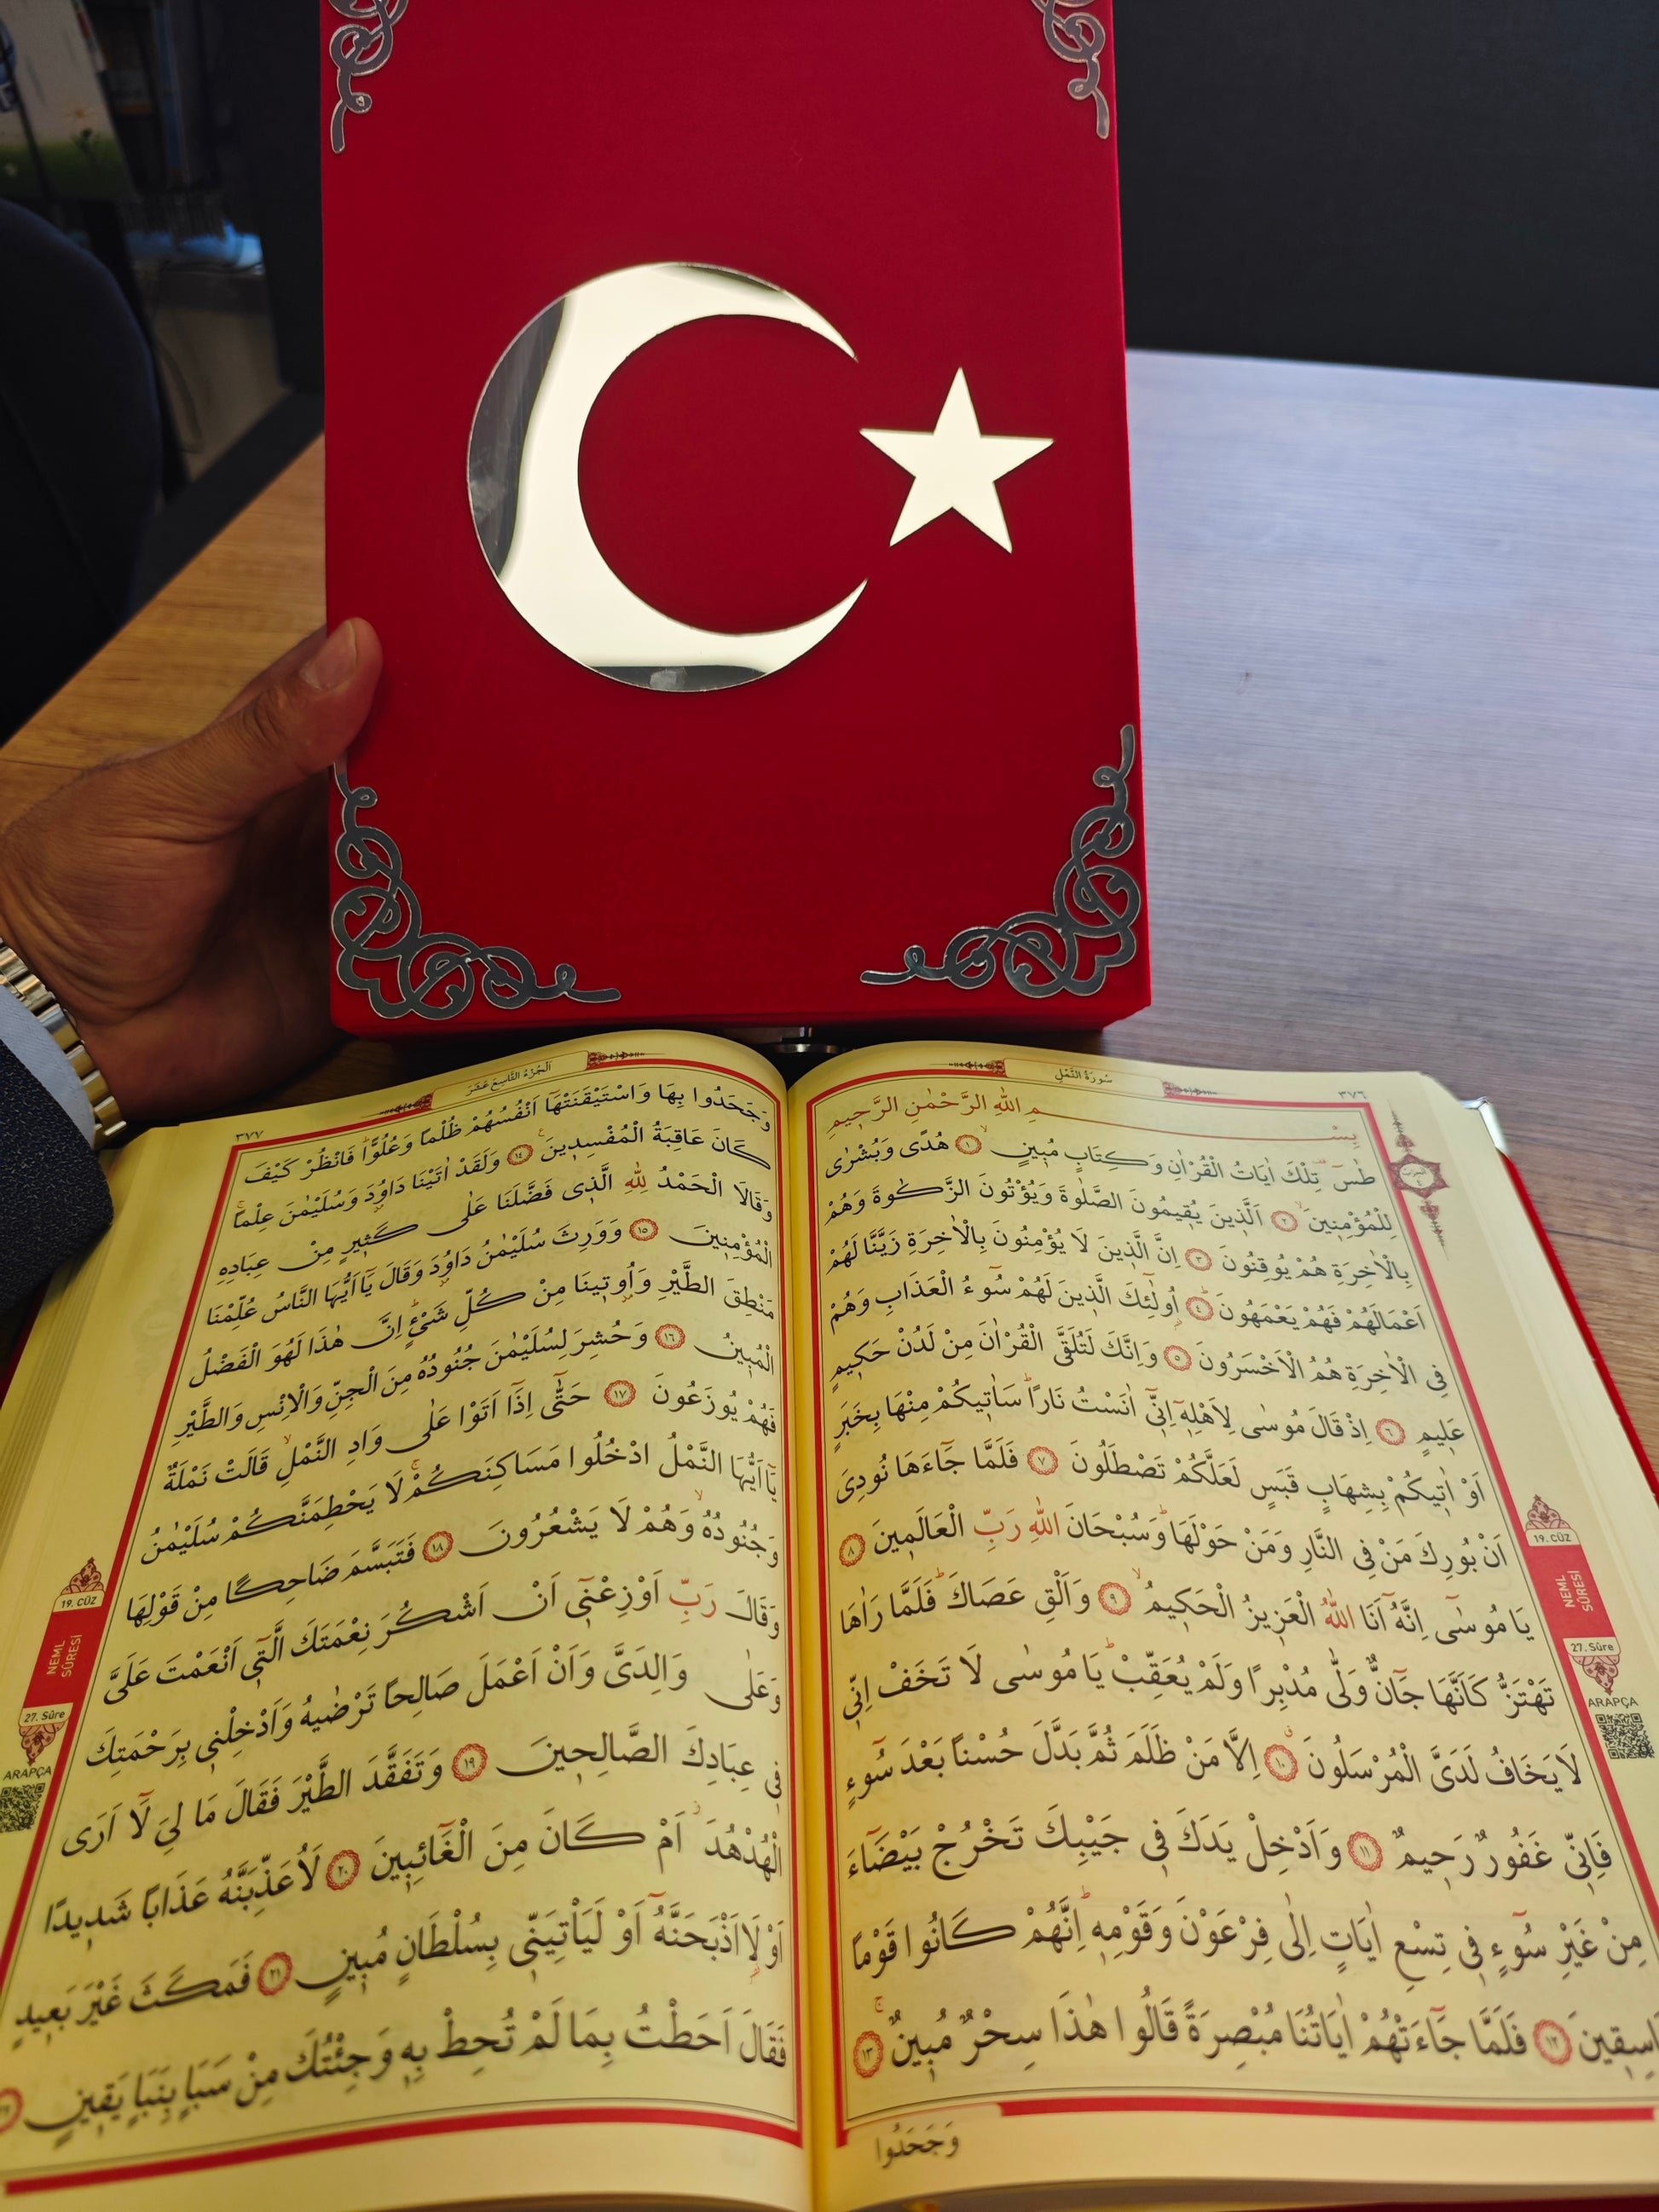 سُورَةُ النَّمْلِ
٣٧٦
بِسْــــمِ اللّٰهِ الرَّحْمٰنِ الرَّحٖيمِ
طٰسٓ تِلْكَ اٰيَاتُ الْقُرْاٰنِ وَكِتَابٍ مُبٖينٍ ١ هُدًى وَبُشْرٰى
لِلْمُؤْمِنٖينَ ٢ اَلَّذٖينَ يُقٖيمُونَ الصَّلٰوةَ وَيُؤْتُونَ الزَّكٰوةَ وَهُمْ
بِالْاٰخِرَةِ هُمْ يُوقِنُونَ ٣ اِنَّ الَّذٖينَ لَا يُؤْمِنُونَ بِالْاٰخِرَةِ زَيَّنَّا لَهُمْ
اَعْمَالَهُمْ فَهُمْ يَعْمَهُونَ ٤ اُولٰٓئِكَ الَّذٖينَ لَهُمْ سُٓوءُ الْعَذَابِ وَهُمْ
فِى الْاٰخِرَةِ هُمُ الْاَخْسَرُونَ ٥ وَاِنَّكَ لَتُلَقَّى الْقُرْاٰنَ مِنْ لَدُنْ حَكٖيمٍ
عَلٖيمٍ ٦ اِذْ قَالَ مُوسٰى لِاَهْلِهٖٓ اِنّٖٓى اٰنَسْتُ نَارًا سَاٰتٖيكُمْ مِنْهَا بِخَبَرٍ
اَوْ اٰتٖيكُمْ بِشِهَابٍ قَبَسٍ لَعَلَّكُمْ تَصْطَلُونَ ٧ فَلَمَّا جَٓاءَهَا نُودِىَ
اَنْ بُورِكَ مَنْ فِى النَّارِ وَمَنْ حَوْلَهَا وَسُبْحَانَ اللّٰهِ رَبِّ الْعَالَمٖينَ ٨
يَا مُوسٰٓى اِنَّهُٓ اَنَا اللّٰهُ الْعَزٖيزُ الْحَكٖيمُ ٩ وَاَلْقِ عَصَاكَ فَلَمَّا رَاٰهَا
تَهْتَزُّ كَاَنَّهَا جَٓانٌّ وَلّٰى مُدْبِرًا وَلَمْ يُعَقِّبْ يَا مُوسٰى لَا تَخَفْ اِنّٖى
لَا يَخَافُ لَدَىَّ الْمُرْسَلُونَ ١٠ اِلَّا مَنْ ظَلَمَ ثُمَّ بَدَّلَ حُسْنًا بَعْدَ سُٓوءٍ
فَاِنّٖى غَفُورٌ رَحٖيمٌ ١١ وَاَدْخِلْ يَدَكَ فٖى جَيْبِكَ تَخْرُجْ بَيْضَٓاءَ
مِنْ غَيْرِ سُٓوءٍ فٖى تِسْعِ اٰيَاتٍ اِلٰى فِرْعَوْنَ وَقَوْمِهٖ اِنَّهُمْ كَانُوا قَوْمًا
فَاسِقٖينَ ١٢ فَلَمَّا جَٓاءَتْهُمْ اٰيَاتُنَا مُبْصِرَةً قَالُوا هٰذَا سِحْرٌ مُبٖينٌ ١٣
وَجَحَدُوا
19. CÜZ
NEML
SÛRESİ
27. Sûre
ARAPÇA
اَلْجُزْءُ التَّاسِعَ عَشَرَ
٣٧٧
وَجَحَدُوا بِهَا وَاسْتَيْقَنَتْهَٓا اَنْفُسُهُمْ ظُلْمًا وَعُلُوًّا فَانْظُرْ كَيْفَ
كَانَ عَاقِبَةُ الْمُفْسِدٖينَ ١٤ وَلَقَدْ اٰتَيْنَا دَاوُدَ وَسُلَيْمٰنَ عِلْمًا
وَقَالَا الْحَمْدُ لِلّٰهِ الَّذٖى فَضَّلَنَا عَلٰى كَثٖيرٍ مِنْ عِبَادِهِ
الْمُؤْمِنٖينَ ١٥ وَوَرِثَ سُلَيْمٰنُ دَاوُدَ وَقَالَ يَٓا اَيُّهَا النَّاسُ عُلِّمْنَا
مَنْطِقَ الطَّيْرِ وَاُوتٖينَا مِنْ كُلِّ شَىْءٍ اِنَّ هٰذَا لَهُوَ الْفَضْلُ
الْمُبٖينُ ١٦ وَحُشِرَ لِسُلَيْمٰنَ جُنُودُهُ مِنَ الْجِنِّ وَالْاِنْسِ وَالطَّيْرِ
فَهُمْ يُوزَعُونَ ١٧ حَتّٰٓى اِذَٓا اَتَوْا عَلٰى وَادِ النَّمْلِ قَالَتْ نَمْلَةٌ
يَٓا اَيُّهَا النَّمْلُ ادْخُلُوا مَسَاكِنَكُمْ لَا يَحْطِمَنَّكُمْ سُلَيْمٰنُ
وَجُنُودُهُ وَهُمْ لَا يَشْعُرُونَ ١٨ فَتَبَسَّمَ ضَاحِكًا مِنْ قَوْلِهَا
وَقَالَ رَبِّ اَوْزِعْنٖٓى اَنْ اَشْكُرَ نِعْمَتَكَ الَّتٖٓى اَنْعَمْتَ عَلَىَّ
وَعَلٰى وَالِدَىَّ وَاَنْ اَعْمَلَ صَالِحًا تَرْضٰيهُ وَاَدْخِلْنٖى بِرَحْمَتِكَ
فٖى عِبَادِكَ الصَّالِحٖينَ ١٩ وَتَفَقَّدَ الطَّيْرَ فَقَالَ مَا لِىَ لَٓا اَرَى
الْهُدْهُدَ اَمْ كَانَ مِنَ الْغَٓائِبٖينَ ٢٠ لَاُعَذِّبَنَّهُ عَذَابًا شَدٖيدًا
اَوْ لَا۬اَذْبَحَنَّهُٓ اَوْ لَيَاْتِيَنّٖى بِسُلْطَانٍ مُبٖينٍ ٢١ فَمَكَثَ غَيْرَ بَعٖيدٍ
فَقَالَ اَحَطْتُ بِمَا لَمْ تُحِطْ بِهٖ وَجِئْتُكَ مِنْ سَبَأٍ بِنَبَأٍ يَقٖينٍ
19. CÜZ
NEML
SÛRESİ
27. Sûre
ARAPÇA